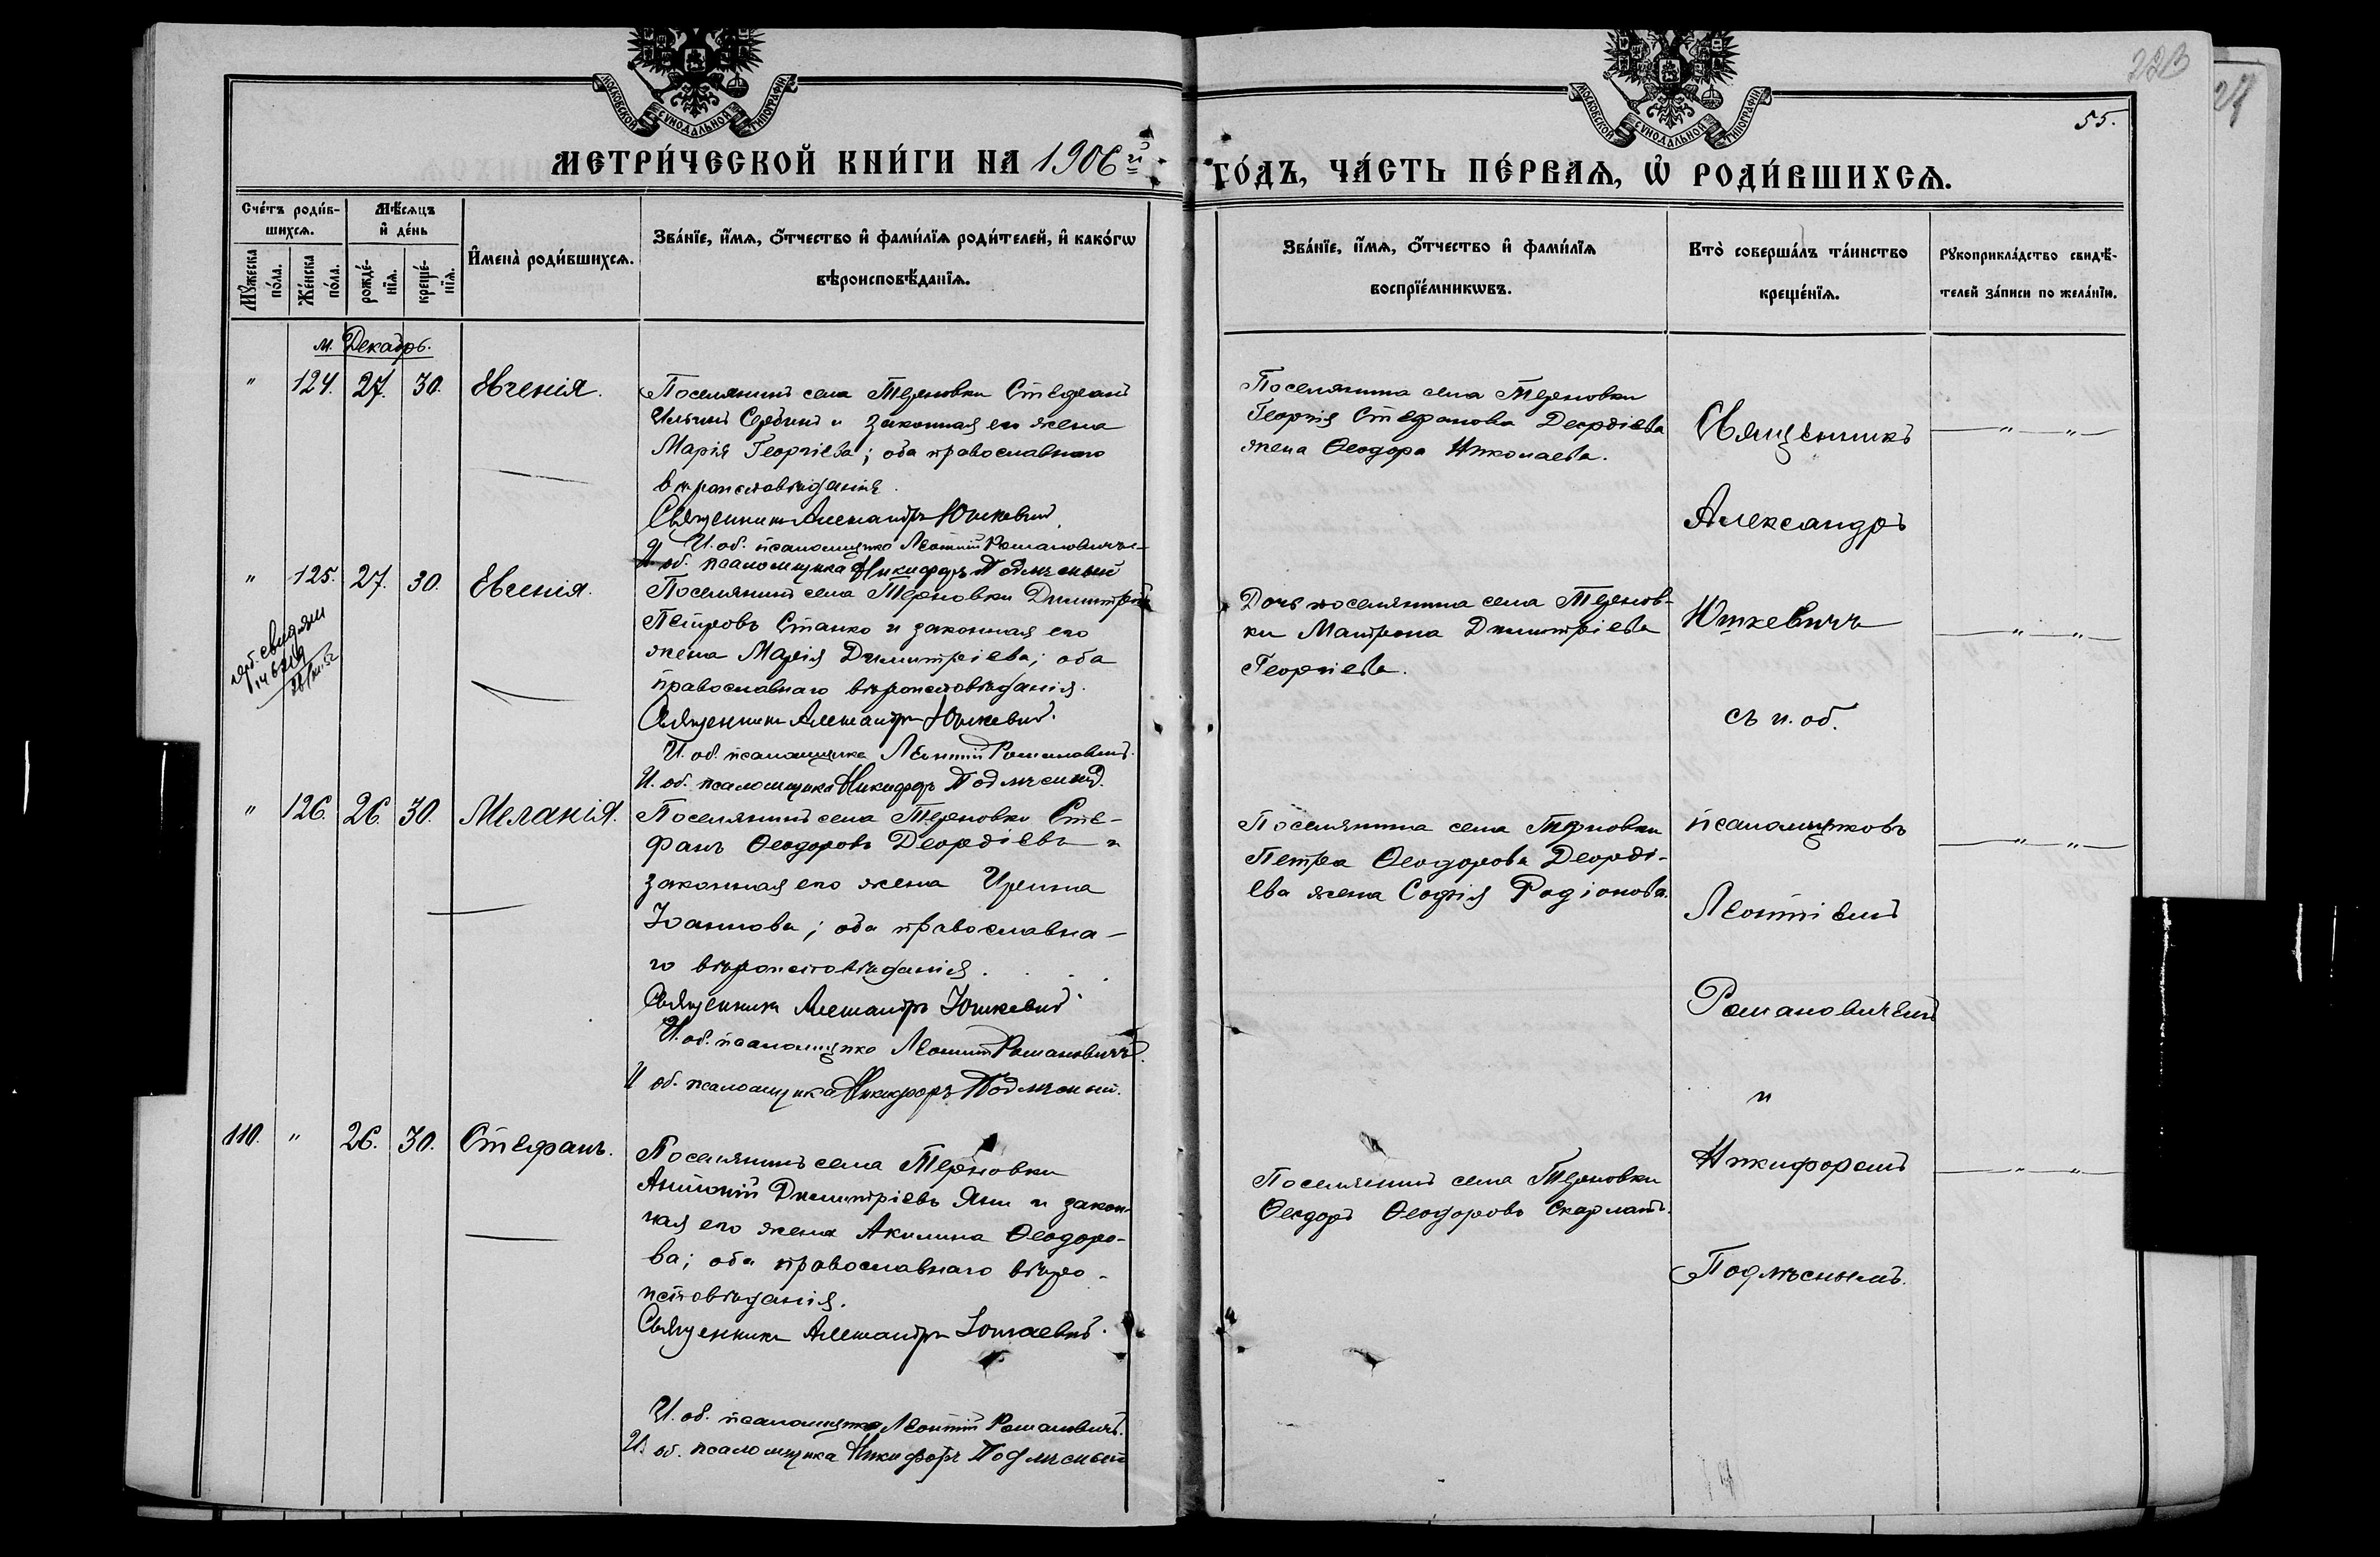 223
27
55.
МОСКОВСКОЙ СѴНОДАЛЬНОЙ ТИПОГРАФІИ
МОСКОВСКОЙ СѴНОДАЛЬНОЙ ТИПОГРАФІИ
МЕТРИ́ЧЕСКОЙ КНИ́ГИ НА 1906 й
ГО́ДЪ, ЧА́СТЬ ПЕ́РВАѦ, Ѽ РОДИ́ВШИХСѦ.
Сче́тъ роди́в-
шихсѧ.
Мꙋ́жеска по́ла.
Же́нска по́ла.
Мѣ́сѧцъ
и҆ де́нь
рожде́-
нїѧ.
креще́-
нїѧ.
И҆мена̀ роди́вшихсѧ.
Зва́нїе, и҆́мѧ, ѻ҆́тчество и҆ фами́лїѧ роди́телей, и҆ како́гѡ
вѣроисповѣ́данїѧ.
Зва́нїе, и҆́мѧ, ѻ҆́тчество и҆ фами́лїѧ
воспрїе́мникѡвъ.
Кто̀ соверша́лъ та́инство
креще́нїѧ.
Рꙋкоприкла́дство свидѣ́-
телей за́писи по жела́нїю.
м. Декабрь.
" 124. 27. 30. Евгенія.
Поселянинъ села Терновки Стефанъ
Ильинъ Сербинъ и законная его жена
Марія Георгіева; оба православнаго
вѣроисповѣданія.
Священникъ Александръ Юшкевичъ.
И. об. псаломщика Леонтій Романовичъ
И об. псаломщика Никифоръ Подлѣсный
Поселянина села Терновки
Георгія Стефанова Деордіева
жена Ѳеодора Николаева.
" 125. 27. 30. Евгенія.
Поселянинъ села Терновки Димитрій
Петровъ Станко и законная его
жена Марія Димитріева; оба
православнаго вѣроисповѣданія.
Священникъ Александръ Юшкевичъ.
И. об. псаломщика Леонтій Романовичъ.
И. об. псаломщика Никифоръ Подлѣсный.
Дочь поселянина села Тернов-
ки Матрона Димитріева
Георгіева.
" 126. 26. 30. Меланія.
Поселянинъ села Терновки Сте-
фанъ Ѳеодоровъ Деордіевъ и
законная его жена Ирина
Іоаннова; оба православна-
го вѣроисповѣданія.
Священникъ Александръ Юшкевичъ
И. об. псаломщика Леонтій Романовичъ.
И об. псаломщика Никифоръ Подлѣсный.
Поселянина села Терновки
Петра Ѳеодорова Деорді-
ева жена Софія Родіонова.
110. " 26. 30. Стефанъ.
Поселянинъ села Терновки
Антоній Димитріевъ Яни и закон-
ная его жена Акилина Ѳеодоро-
ва; оба православнаго вѣро-
исповѣданія.
Священникъ Александръ Юшкевичъ.
И. об. псаломщика Леонтій Романовичъ.
И. об. псаломщика Никифоръ Подлѣсный
Поселянинъ села Терновки
Ѳеодоръ Ѳеодоровъ Скарлатъ.
Священникъ
Александръ
Юшкевичъ
съ и. об.
псаломщиковъ
Леонтіемъ
Романовичемъ
и
Никифоромъ
Подлѣснымъ.